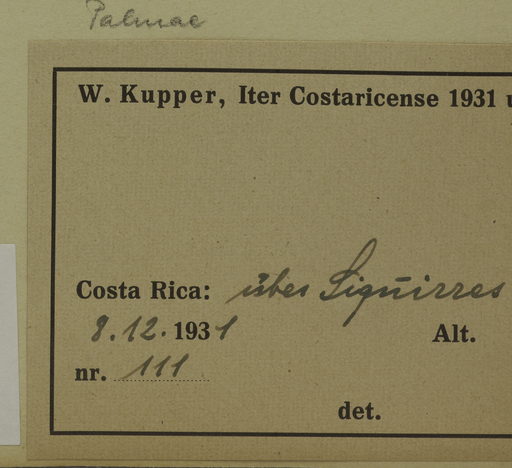 Palmae
W. Kupper, Iter Costaricense 1931 u
Costa Rica: über Siquirres
8.12.1931
Alt.
nr. 111
det.